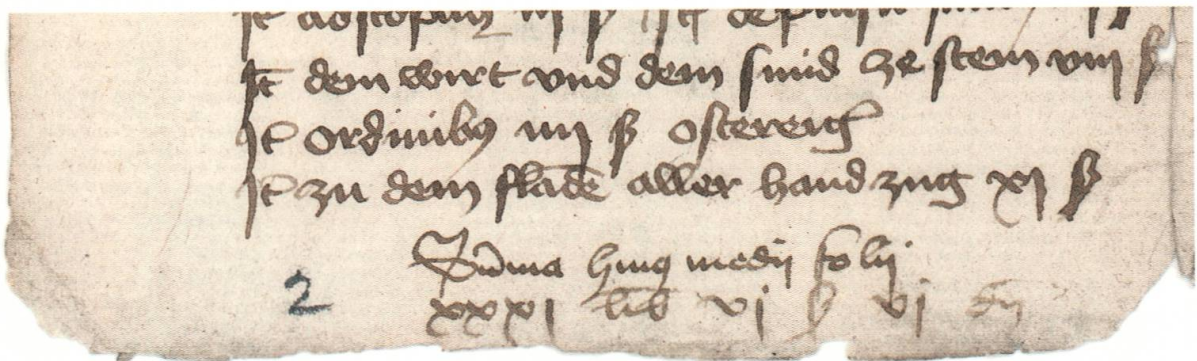 It dem wirt vnd dem smid ze stein viii ß
It ordinibus iiii ß osterreich
It zu dem fladē aller hand zug xi ß
Sūma huiꝰ medij folij
2
xxxi lib vi ß vi dn